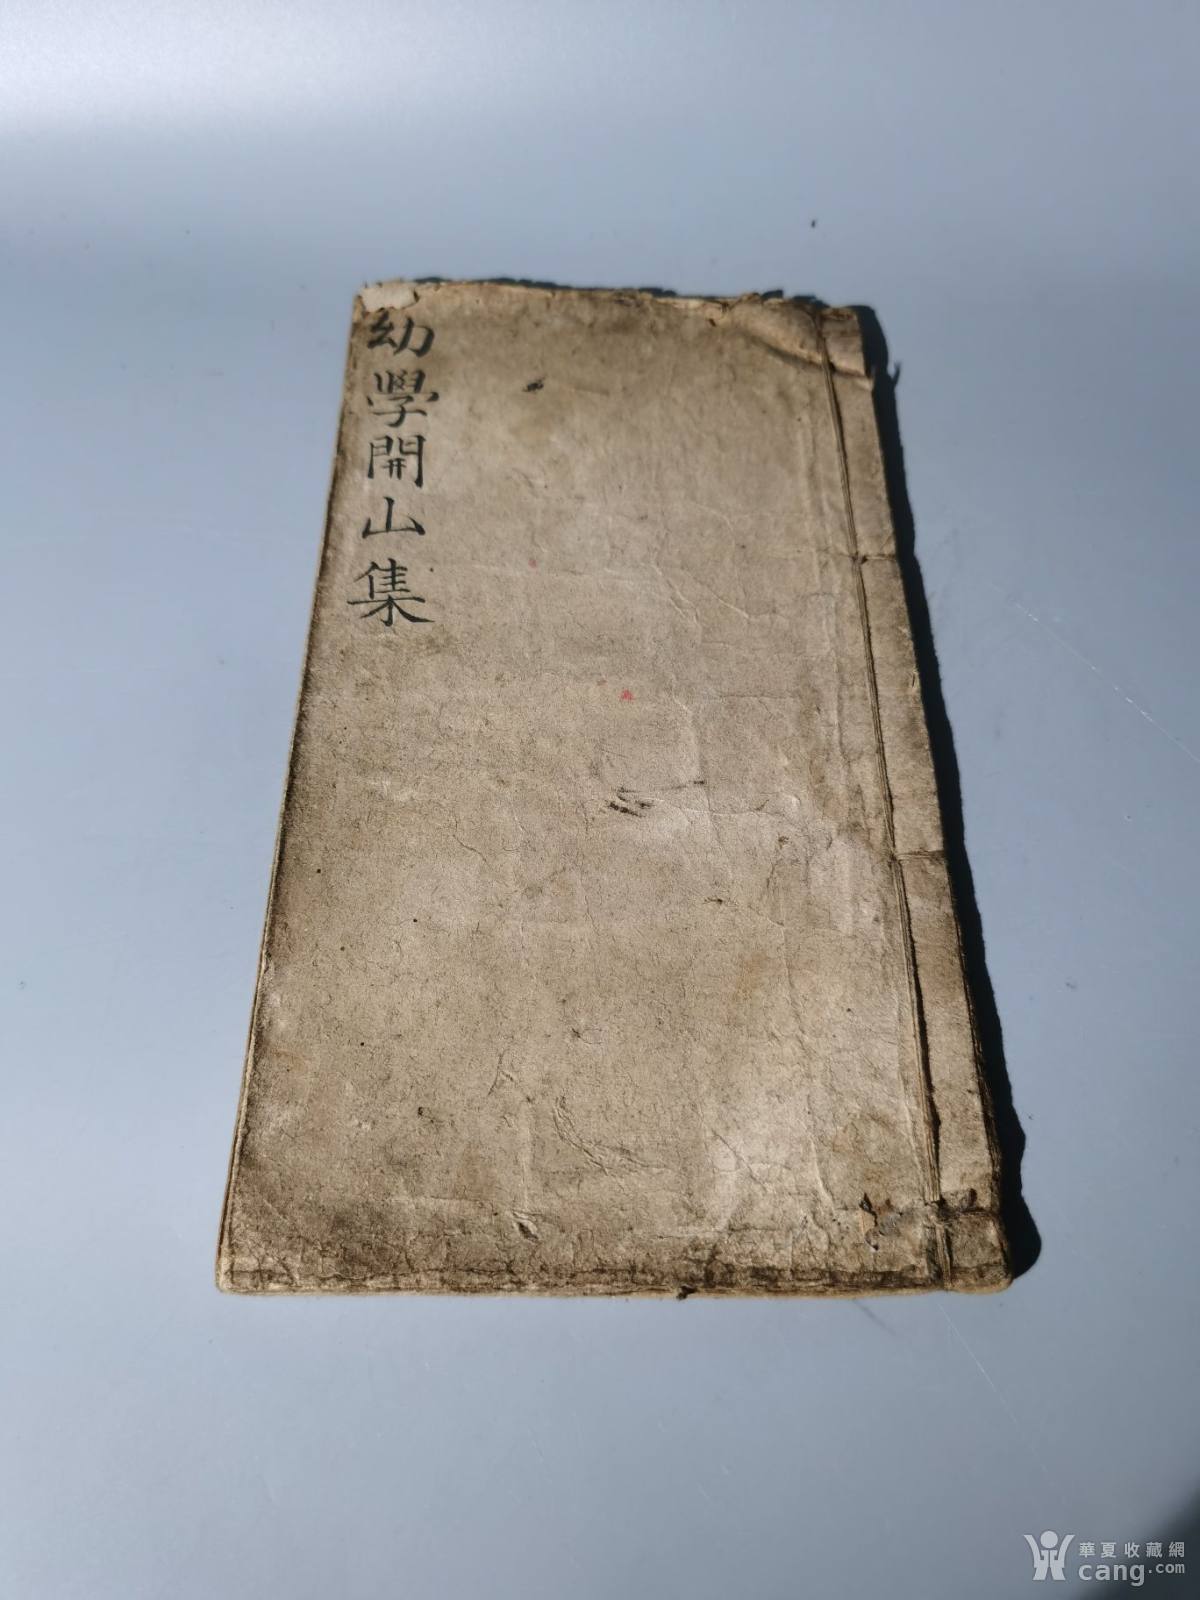 幼學開山集
華夏收藏網
cang.com